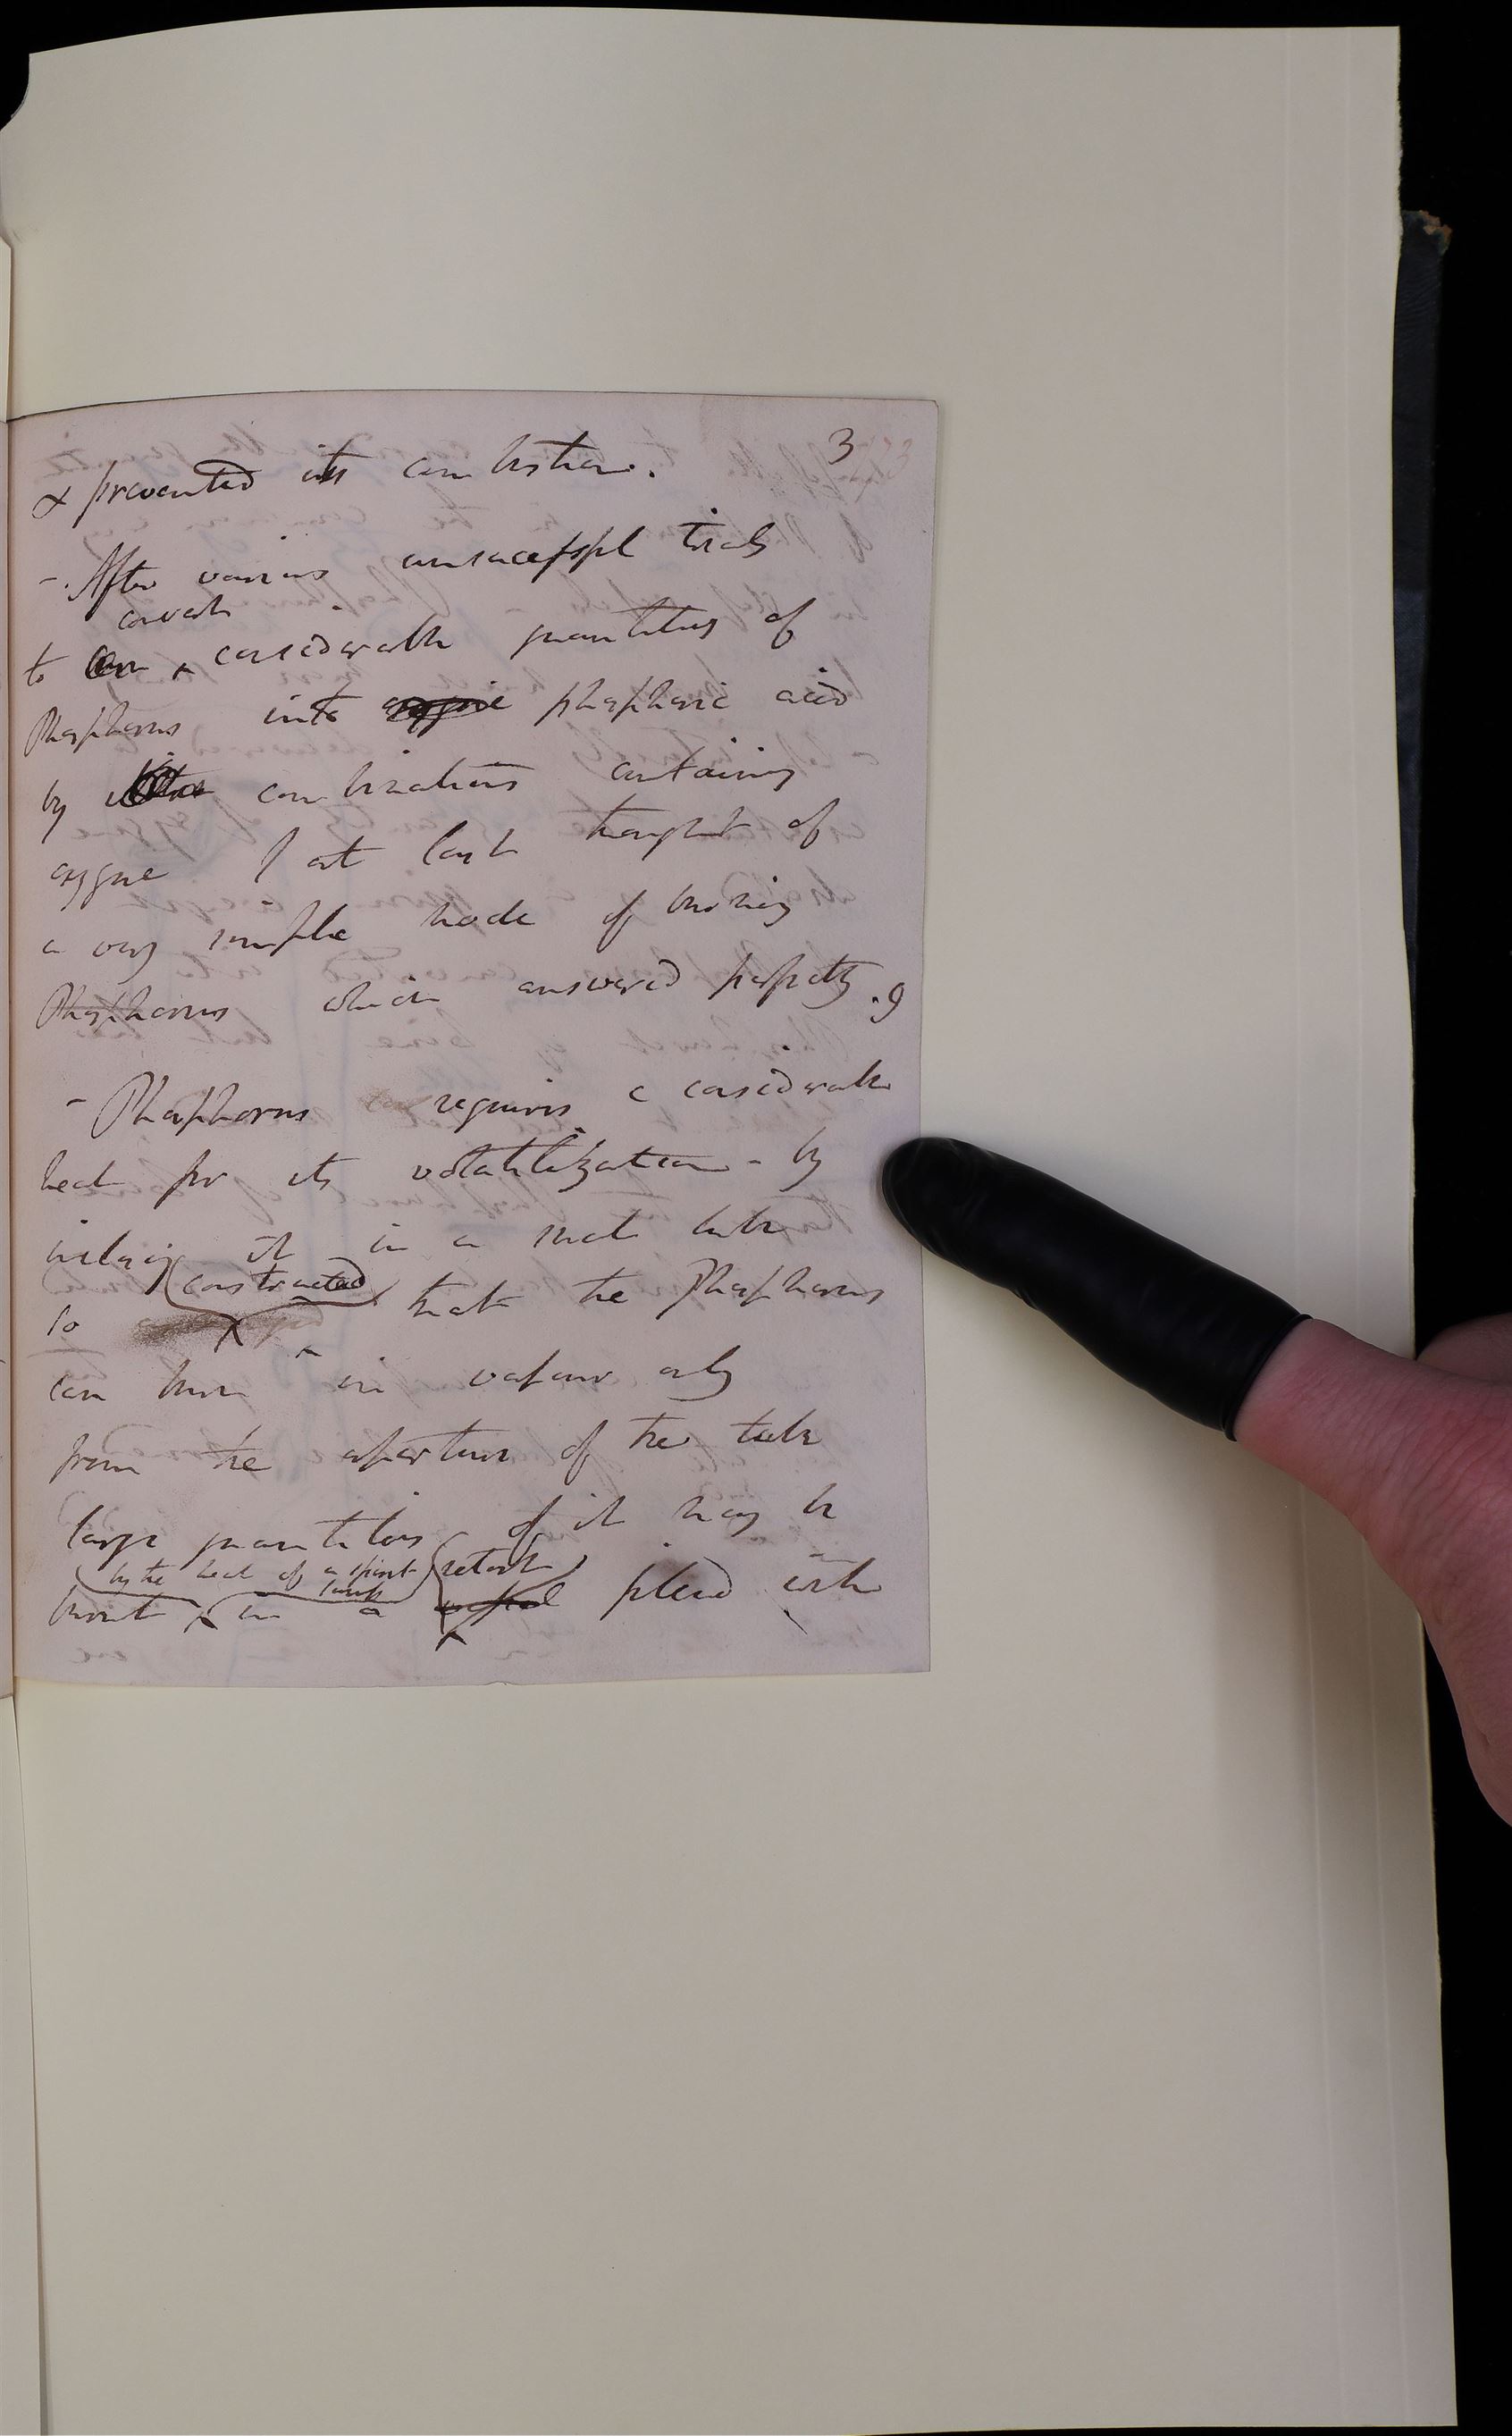 3
& prevented its combustion.
- After various unsuccessful trials
convert
to considerable quantities of
Phosphorus into oxygene phosphoric acid
by combinations containing
oxygene I at last thought of
a very simple mode of burning
Phosphorus which answered perfectly.
- Phosphorus requires a considerable
heat for its volatilization - by
it in a small tube
constructed
so that the Phosphorus
can burn in vapour only
from the aperture of the tube
large quantities of it may be
by the heat of a spirit lamp retort
burnt in a vessel filled with